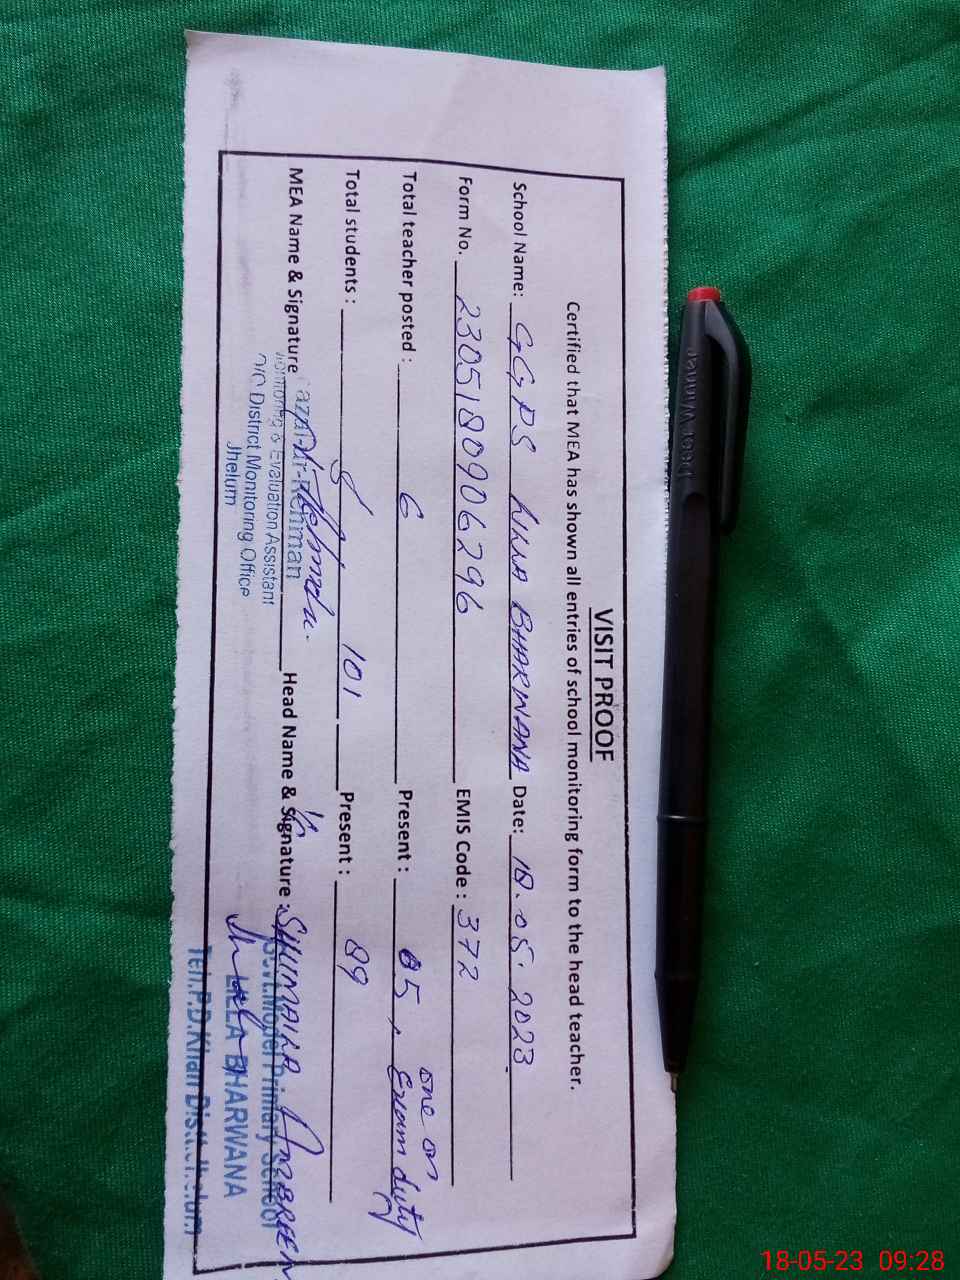 VISIT PROOF
Certified that MEA has shown all entries of school monitoring form to the head teacher.
School Name: GGPS LILLA BHARWANA Date: 18.05.2023.
Form No. 2305180906296 EMIS Code: 372
one on
Total teacher posted: 6 Present: 05, Exam duty
Total students: 101 Present: 89
MEA Name & Signature Head Name & Signature: SHUMAILA AMBREEN
azal-ur-Rehman
Monitoring & Evaluation Assistant
O/O District Monitoring Office
Jhelum
Govt. Model Primary School
LILLA BHARWANA
Teh. P.D. Khan Distt. Jhelum
18-05-23 09:28